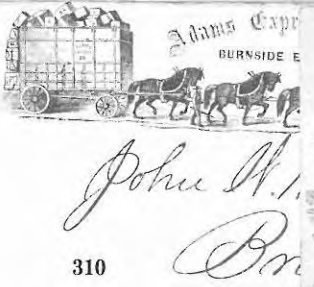 Adams Expr
BURNSIDE E
John W.
Br
310